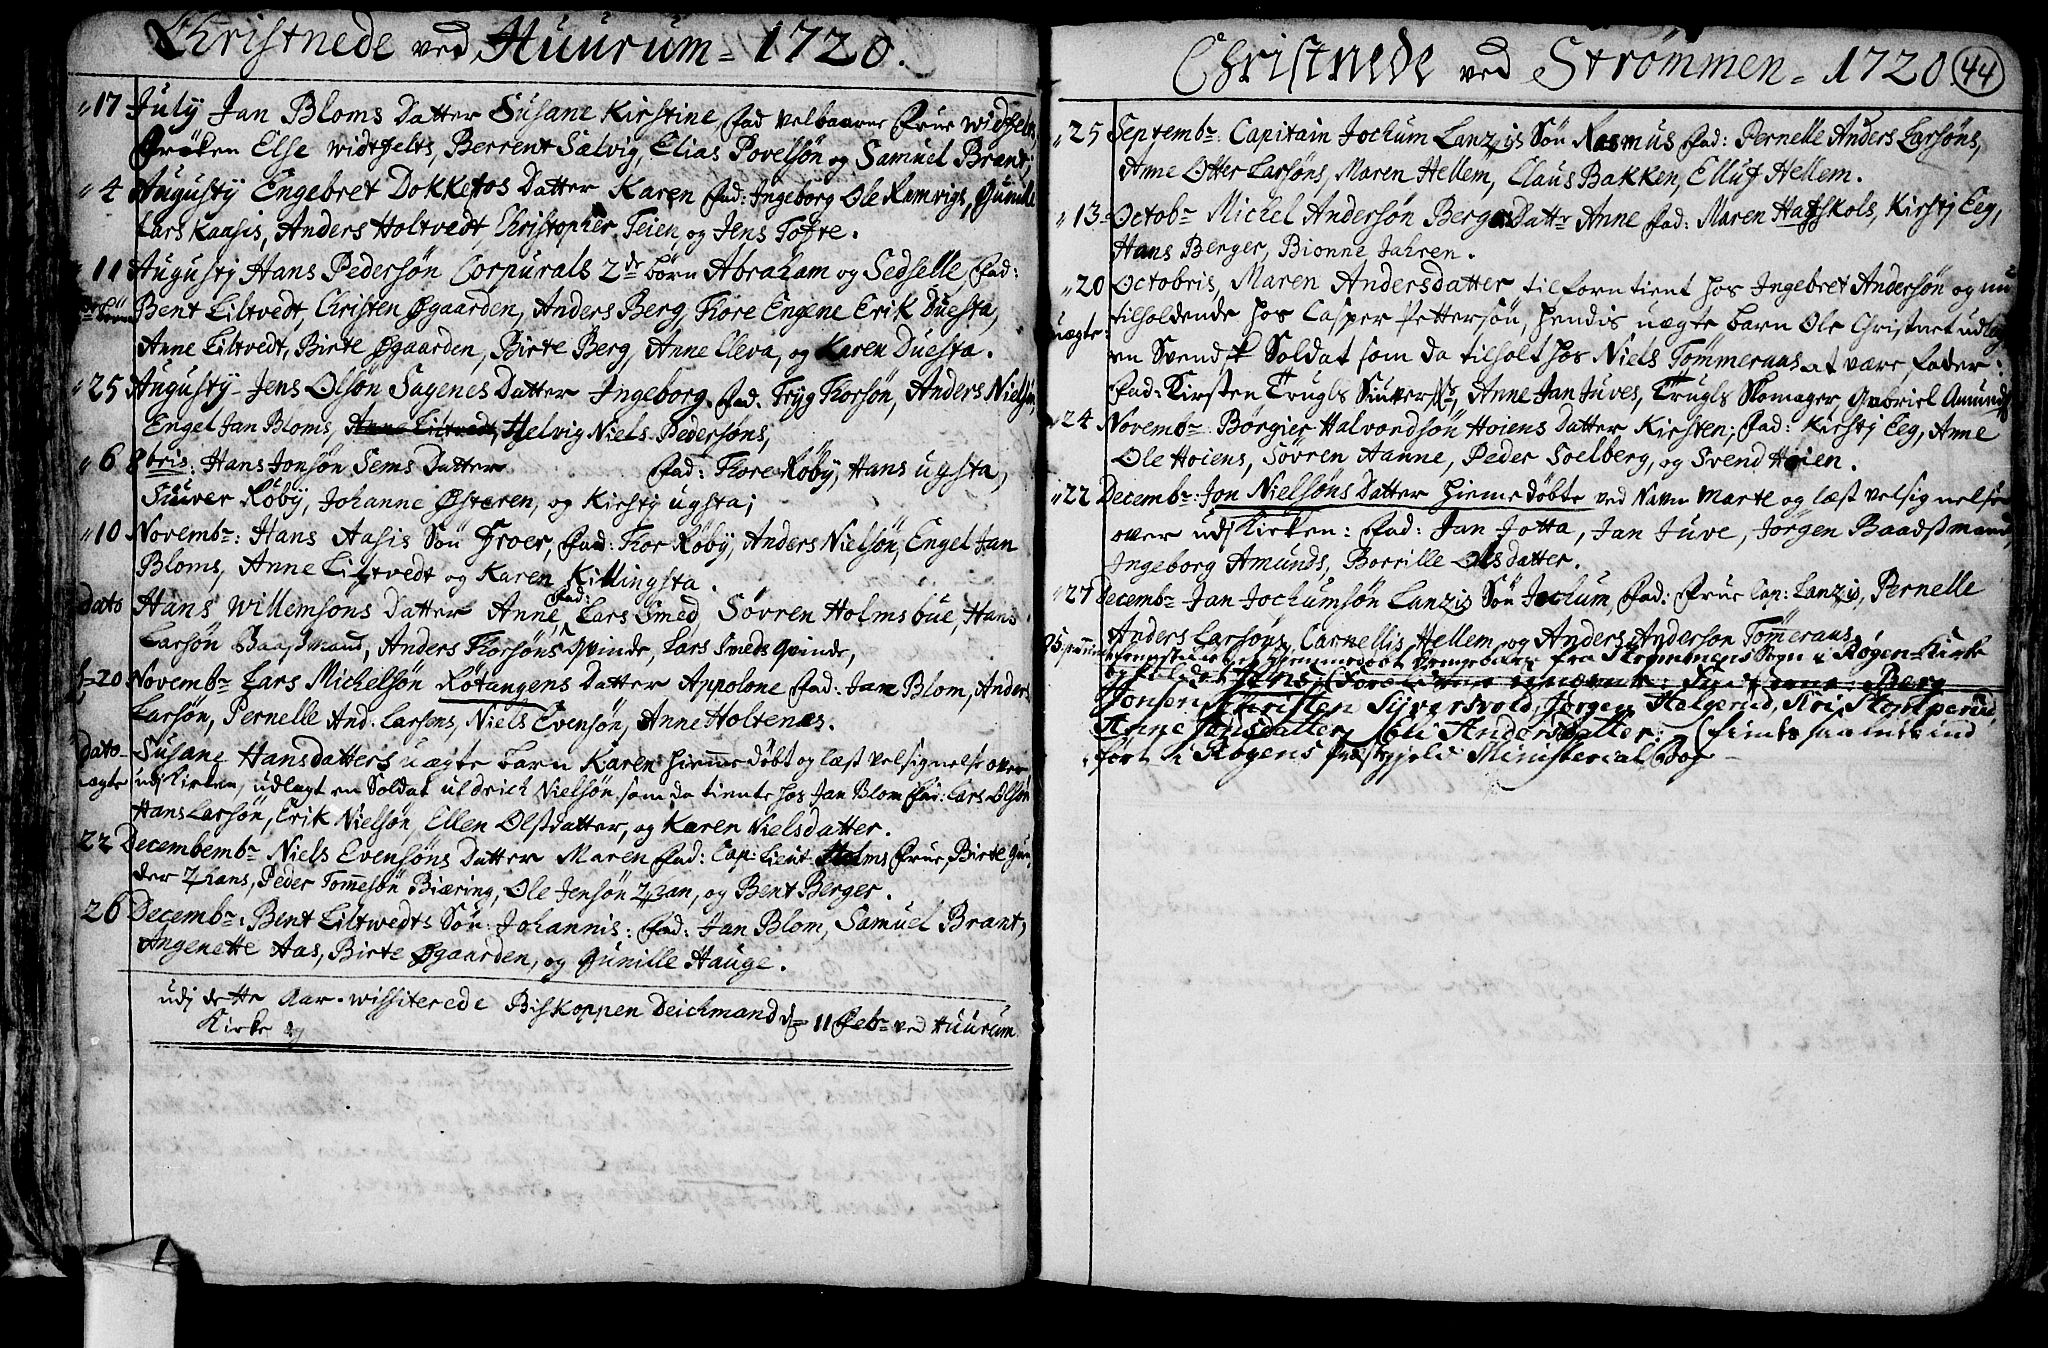 Christnede ved Huurum = 1720.
17 July Jan Bloms Datter Susane Kirstine fad velbaarne Frue Widfelt,
Frøken Else Widtfelts, Berrent Salvig, Elias Povelsøn og Samuel Brant,
4 Augusty Engebret Dokketos Datter Karen fad: Ingeborg Ole Ramvigs, Gunild
Lars Kaasis, Anders Holtvedt, Christopher Teien, og Jens Tofte.
11 Augusty Hans Pedersøn Corpurals 2de børn Abraham og Sedselle, fad:
Bent Liltvedt, Christen Øgaarden, Anders Berg, Thore Engene Erik Duesta,
Anne Liltvedt, Birte Øgaarden, Birte Berg, Anne Cleva, og Karen Duesta.
25 Augusty Jens Olsøn Sagenes Datter Ingeborg. fad. Tryg Thorsøn, Anders Nielsøn,
Engel Jan Bloms, Anne Liltvedt, Helvig Niels Pedersøns,
6 8bris: Hans Jonsøn Sems Datter fad: Thore Røby, Hans ugsta,
Siuver Røby, Johanne Østeren, og Kirsty ugsta;
10 Novembr: Hans Aasis Søn Troer, fad: Thor Røby, Anders Nielsøn, Engel Jan
Bloms, Anne Liltvedt og Karen Killingsta.
Dato Hans Willemsøns Datter Anne, fad: Lars Smed, Søvren Holmsbue, Hans
Larsøn Baadsmand, Anders Thorsøns Qvinde, Lars Smeds Qvinde,
20 Novembr Lars Michelsøn Røtangens Datter Appolone fad: Jan Blom, Anders
Larsøn, Pernelle And: Larsens, Niels Evensøn, Anne Holtenæs.
Dato Susane Hansdatters uægte barn Karen hiemme døbt og læst velsignelse over
uægte udj Kirken, udlagt en Soldat uldrich Nielsøn som da tiente hos Jan Blom fad: Lars Olsøn
Hans Larsøn, Erik Nielsøn, Ellen Olsdatter, og Karen Nielsdatter.
22 Decembembr Niels Evensøns Datter Maren fad: Cap: Lieut Holms Frue, Birte Gun
der Hans, Peder Tommesøn Biæring, Ole Jensøn, og Bent Berger.
26 Decembr: Bent Liltwedts Søn Johannis: fad: Jan Blom, Samuel Brant,
Angenette Aas, Birte Øgaarden, og Gunille Hauge.
udj dette Aar wissiterede Biskoppen Deichmand d= 11 Febr ved Huurum
Kirke
Christnede ved Strømmen = 1720 44
25 Septembr: Capitain Jochum Lanzis Søn Rasmus fad: Pernelle Anders Larsøns,
Anne Otter Larsøns, Maren Hellem, Claus Bakken, Elluf Hellem.
13 Octobr Michel Andersøn Berges Dattr Anne fad: Maren Hafskols, Kirsty Eeg,
Hans Berger, Bionne Jahren.
20 Octobris, Maren Andersdatter tilforn tient hos Ingebret Andersøn og nu
uægte: tilholdende hos Casper Pettersøn, hendis uægte barn Ole Christnet udlagt
en Svensk Soldat som da tilholt hos Niels Tømmeraas at være fader:
fad: Kirsten Trugls Siuvers, Anne Jan Juves, Trugls Skomager Gabriel Amunds
24 Novembr Børgier Halvordsøn Hoiens Datter Kirsten; fad: Kirsty Eeg, Anne
Ole Hoiens, Søvren Hanne, Peder Soelberg, og Svend Hoien.
22 Decembr: Jon Nielsøns Datter hieme døbte ved Navn Marte og læst velsignelse
over udj Kirken: fad: Jan Jotta, Jan Juve, Jørgen Baadsmand,
Ingeborg Amunds, Borrille Olsdatter.
27 Decembr Jan Jochumsøn Lanzis Søn Jochum, fad: Frue Cap: Lanzis, Pernelle
Anders Larsøns, Carnellis Hellem, og Anders Andersøn Tømeraas
fra Strømmens Sogn i Røgen Kirke
Jens Berg
Jonsen, Christen Syversvold, Jørgen Helgerud, Kri,
Anne Jansdatter, Andersdatter.
ført i Røgens Præstegjelds Ministerial Bog